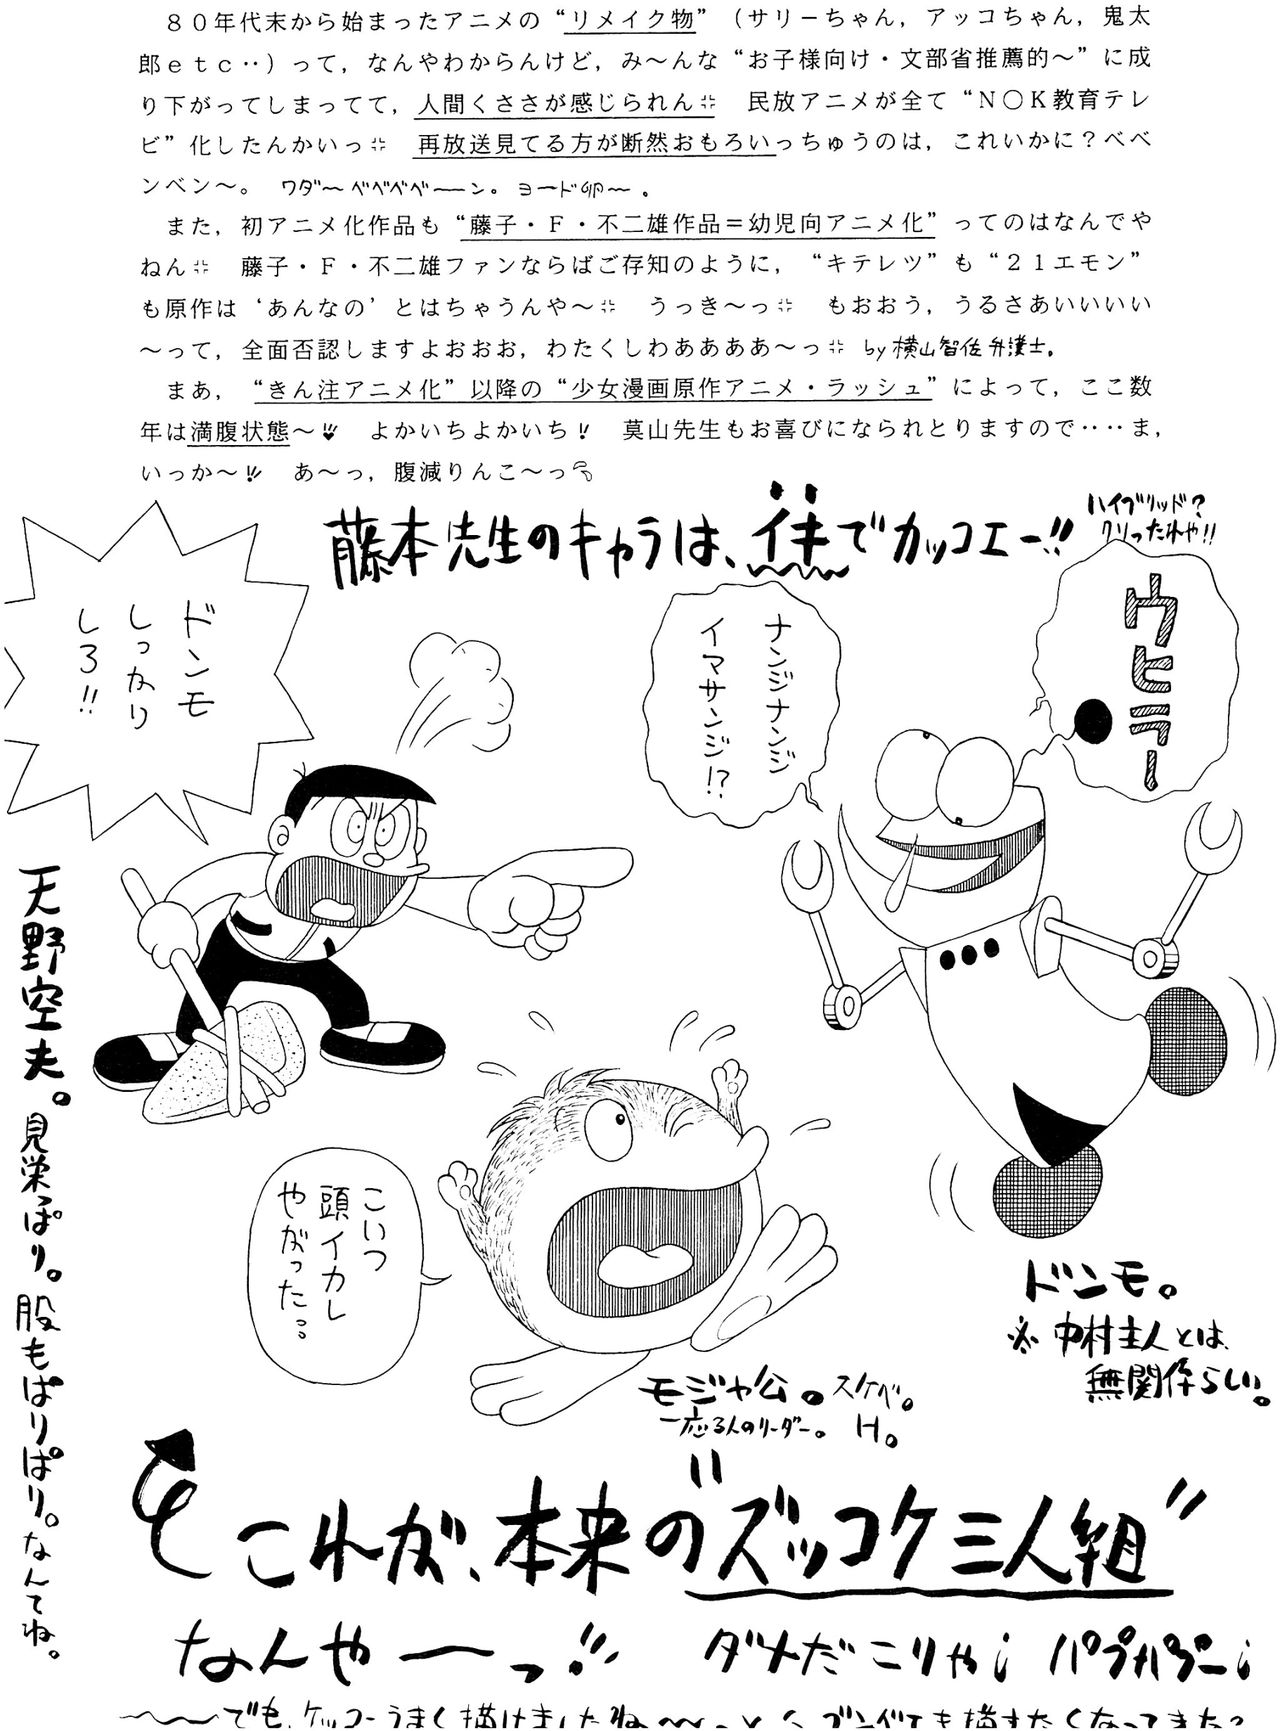 ８０年代末から始まったアニメの“リメイク物”（サリーちゃん，アッコちゃん，鬼太
郎ｅｔｃ‥）って，なんやわからんけど，み～んな“お子様向け・文部省推薦的～”に成
り下がってしまってて，人間くささが感じられん　民放アニメが全て“Ｎ○Ｋ教育テレ
ビ”化したんかいっ　再放送見てる方が断然おもろいっちゅうのは，これいかに？ベベ
ンベン～。 ワダ～ベベベベ～ーン。ヨード卵～。
また，初アニメ化作品も“藤子・Ｆ・不二雄作品＝幼児向アニメ化”ってのはなんでや
ねん　藤子・Ｆ・不二雄ファンならばご存知のように，“キテレツ”も“２１エモン”
も原作は‘あんなの’とはちゃうんや～　うっき～っ　もおおう，うるさあいいいい
～って，全面否認しますよおおお，わたくしわああああ～っ by 横山智佐弁護士。
まあ，“きん注アニメ化”以降の“少女漫画原作アニメ・ラッシュ”によって，ここ数
年は満腹状態～!!　よかいちよかいち!!　莫山先生もお喜びになられとりますので‥‥ま，
いっか～!!　あ～っ，腹減りんこ～っ
藤本先生のキャラは、イキでカッコエー!!
ハイブリッド？
クリったれや!!
ウヒラー
ナンジナンジ
イマサンジ!?
ドンモ
しっかり
しろ!!
天野空夫。見栄っぱり。股もぱりぱり。なんてね。
こいつ
頭イカレ
やがった…
ドンモ。
※中村主人とは、
無関係らしい。
モジャ公。スケベ。
一応3人のリーダー。H。
これが、本来の“ズッコケ三人組”
なんやーーっ!!　ダメだこりゃ¡　パプパプー¡
～～でも、ケッコーうまく描けましたね～～